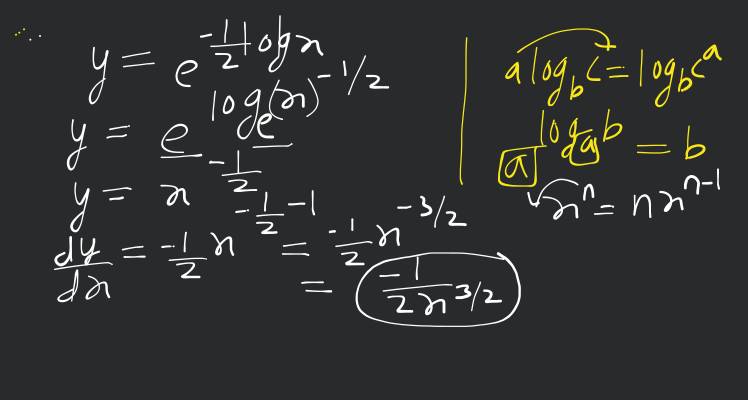 y = e^{-1/2 log x}
y = e^{log_e(x)^{-1/2}}
y = x^{-1/2}
dy/dx = -1/2 x^{-1/2-1} = -1/2 x^{-3/2}
= -1/2x^{3/2}
a log_b c = log_b c^a
a^{log_a b} = b
x^n = nx^{n-1}